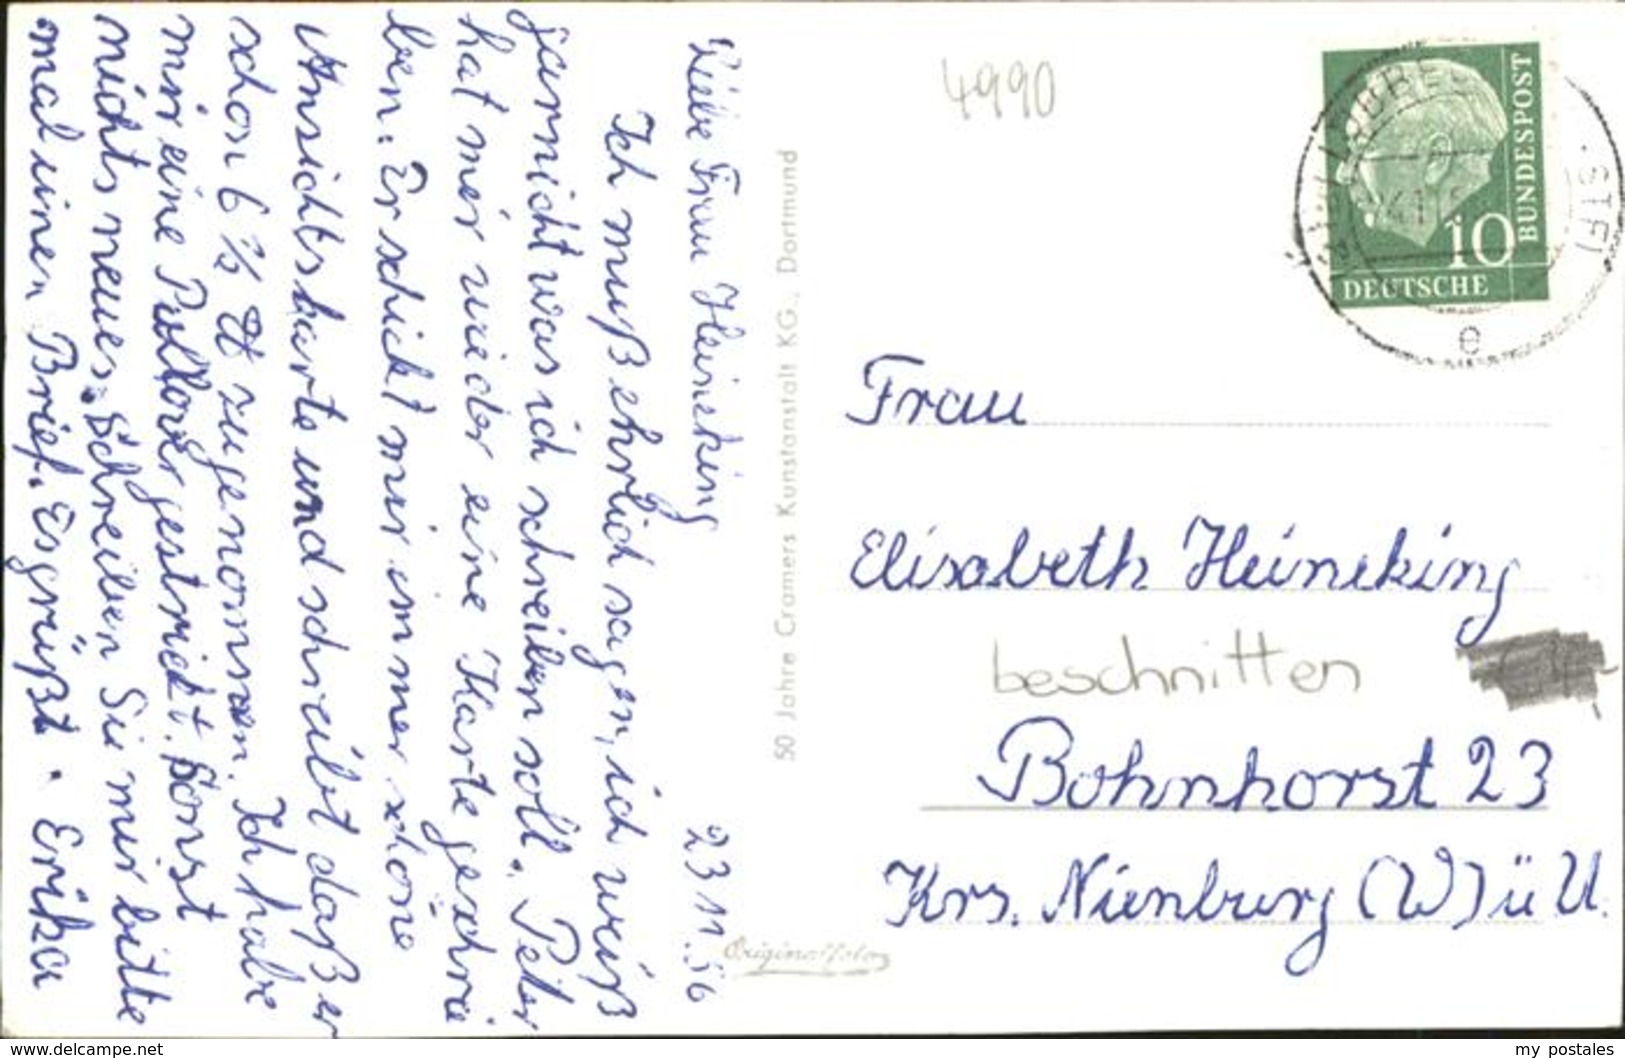 Liebe Frau Heineking 23 11. 56
Ich muß ehrlich sagen, ich weiß
garnicht was ich schreiben soll. Peter
hat mir wieder eine Karte geschrie
ben. Er schickt mir immer schöne
Ansichtskarte und schreibt daß er
schon 6 ½ ℔ zugenommen. Ich habe
mir eine Pullover gestrickt. Sonst
nichts neues. Schreiben Sie mir bitte
mal einen Brief. Es grüßt. Erika
50 Jahre Cramers Kunstanstalt KG., Dortmund
Originalfoto
4990
10
DEUTSCHE
BUNDESPOST
e
Frau
Elisabeth Heineking
beschnitten
Bohnhorst 23
Krs. Nienburg (W) ü U.
www.delcampe.net
my postales